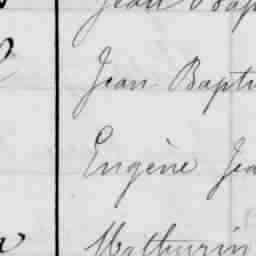 Jean Bap
Jean Bapti
Eugène Jea
Mathurin